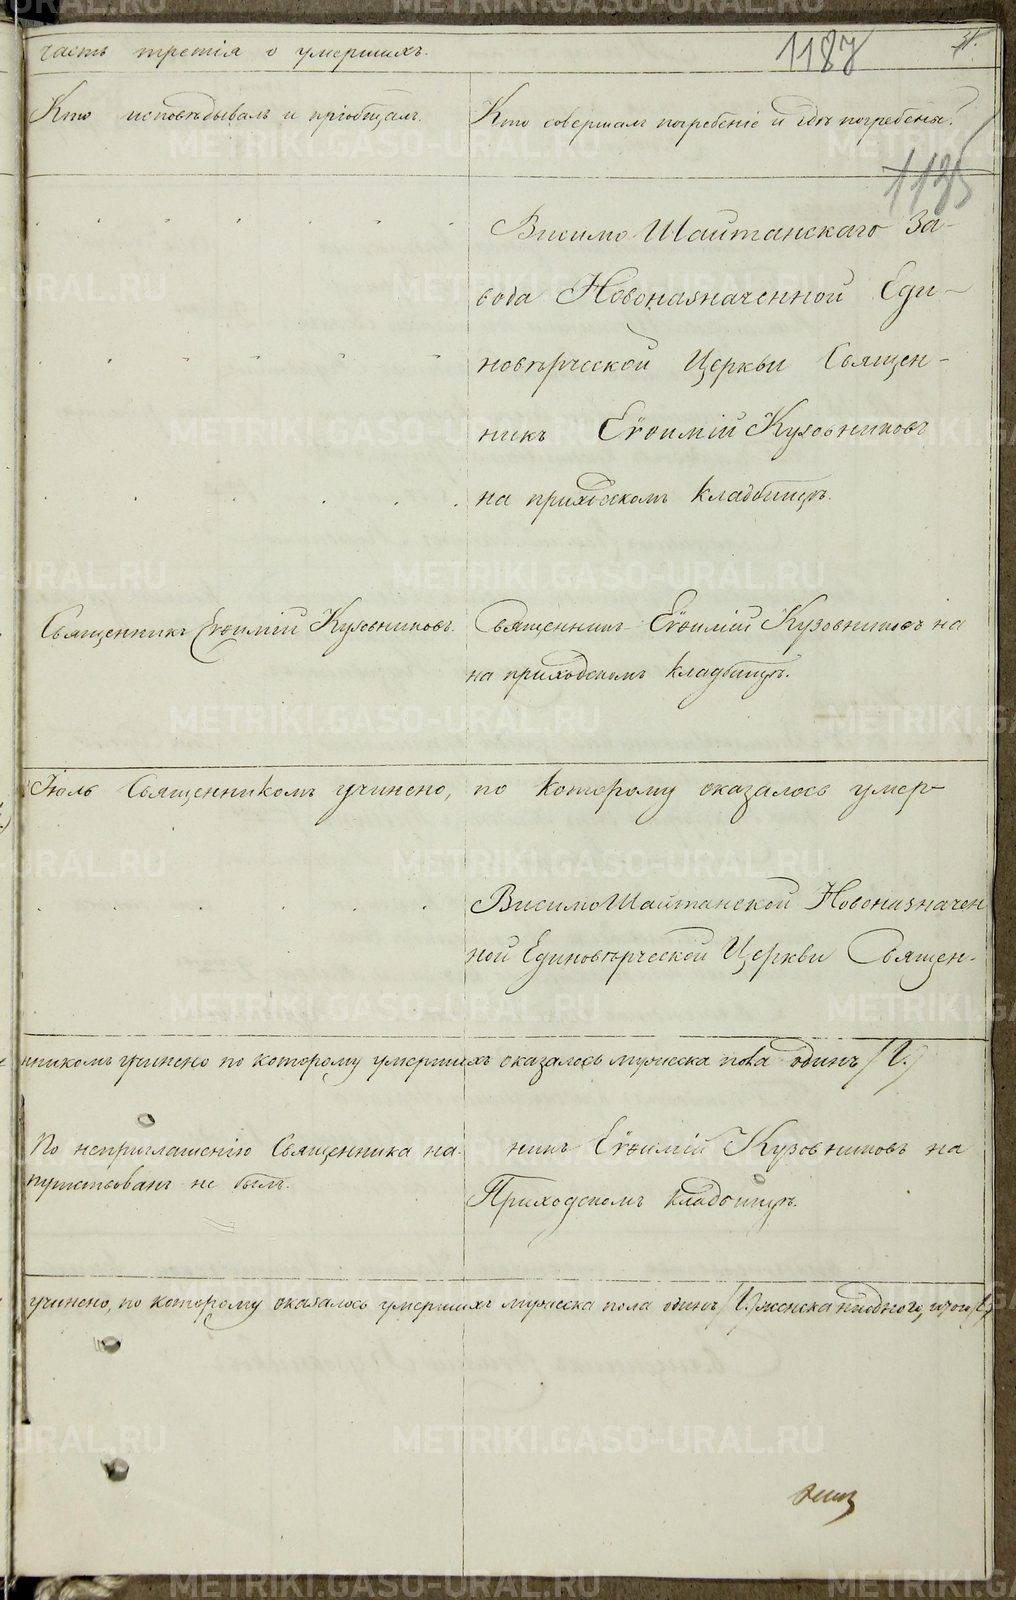 часть третія о умершихъ.
1187
31.
Кто исповѣдывалъ и пріобщалъ.
Кто совершалъ погребеніе и гдѣ погребены?
1135
Висимо Шайтанскаго За-
вода Новоназначенной Еди-
новѣрческой Церкви Священ-
никъ Евѳимій Кузовниковъ
на приходскомъ кладбищѣ.
Священникъ Евѳимій Кузовниковъ.
Священникъ Евѳимій Кузовниковъ на
на приходскомъ кладбищѣ.
Іюль Священникомъ учинено, по которому оказалось умер-
ВисимоШайтанской Новоназначен
ной Единовѣрческой Церкви Священ-
нникомъ учинено по которому умершихъ оказалось мужеска пола одинъ /1./
По неприглашенію Священника на-
путствованъ не былъ.
никъ Евѳимій Кузовниковъ на
Приходскомъ кладбищѣ.
учинено, по которому оказалось умершихъ мужеска пола одинъ /1./ женска ниодного, итого /1./
METRIKI.GASO-URAL.RU